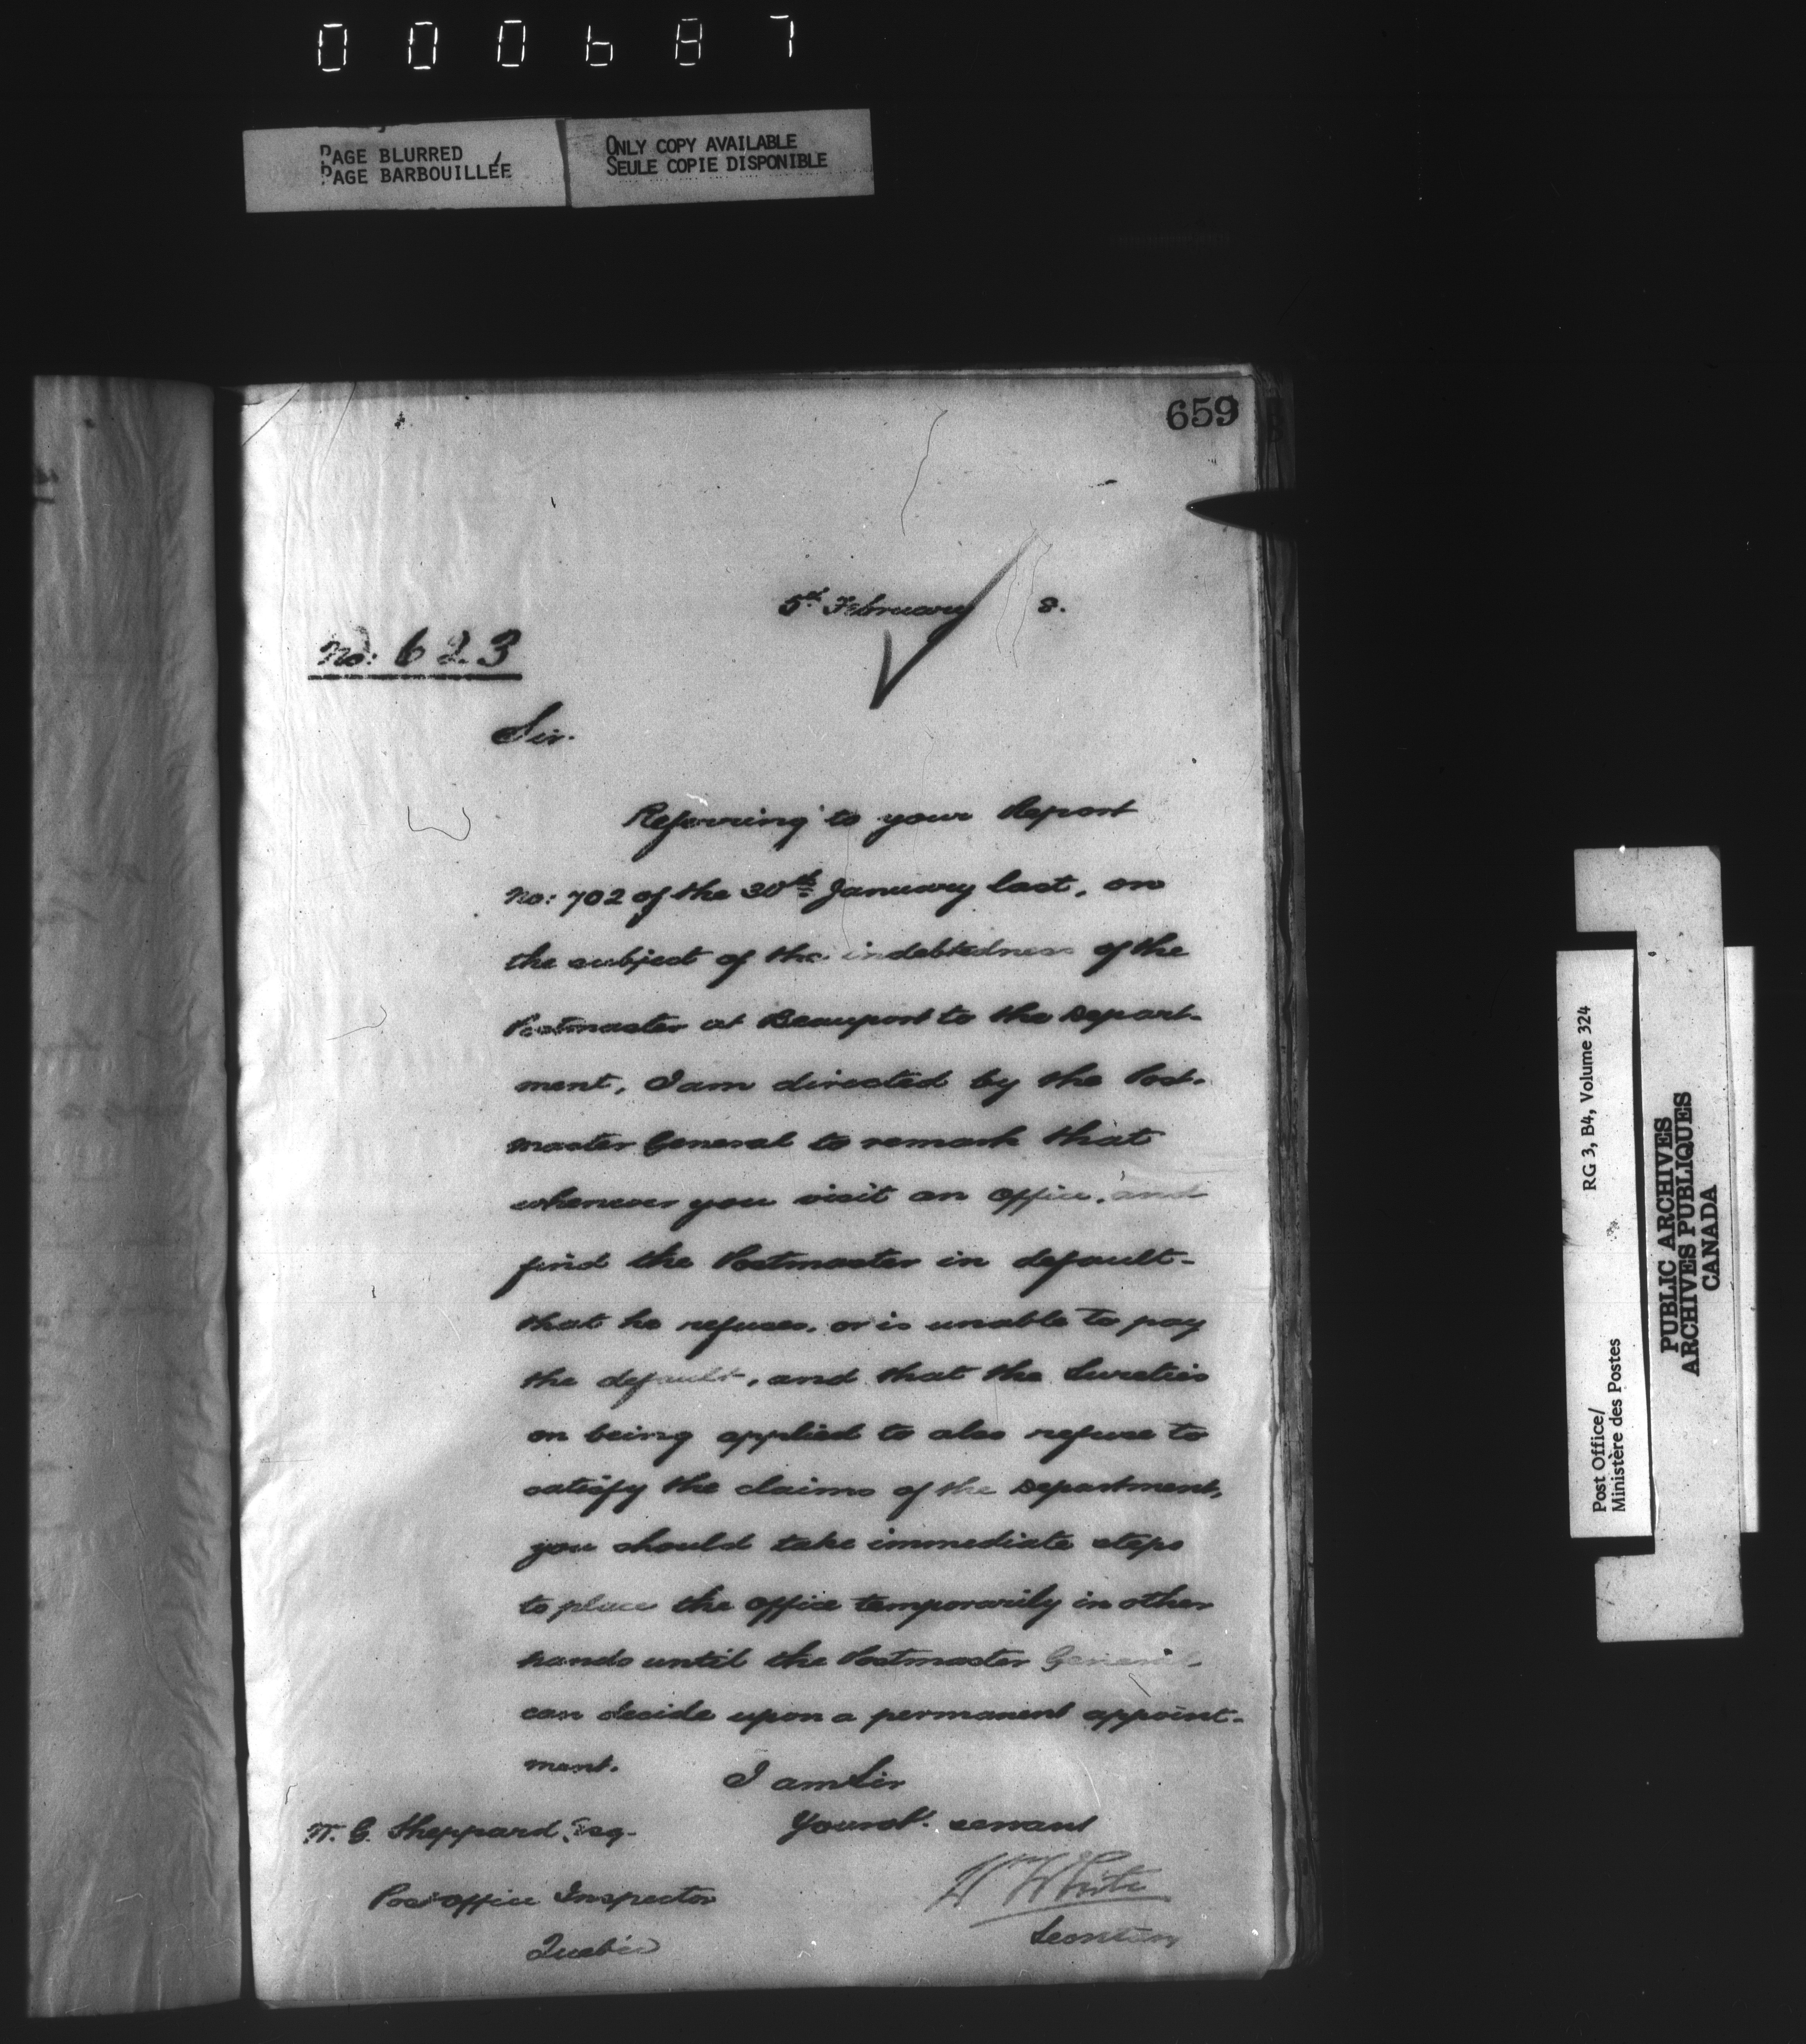 000687
PAGE BLURRED
PAGE BARBOUILLÉE
ONLY COPY AVAILABLE
SEULE COPIE DISPONIBLE
659
5th February 8.
No: 623
Sir.
Referring to your Report
No: 702 of the 30th January last, on
the subject of the indebtedness of the
Postmaster at Beauport to the Depart-
ment, I am directed by the Post-
master General to remark that
whenever you visit an office, and
find the Postmaster in default-
that he refuses, or is unable to pay
the default, and that the Sureties
on being applied to also refuse to
satisfy the claims of the Department,
you should take immediate steps
to place the office temporarily in other
hands until the Postmaster General
can decide upon a permanent appoint-
ment.
I am Sir
Your obt. servant
Wm White
Secretary
W. G. Sheppard, Esq.
Post Office Inspector
Quebec
Post Office/
Ministère des Postes
RG 3, B4, Volume 324
PUBLIC ARCHIVES
ARCHIVES PUBLIQUES
CANADA